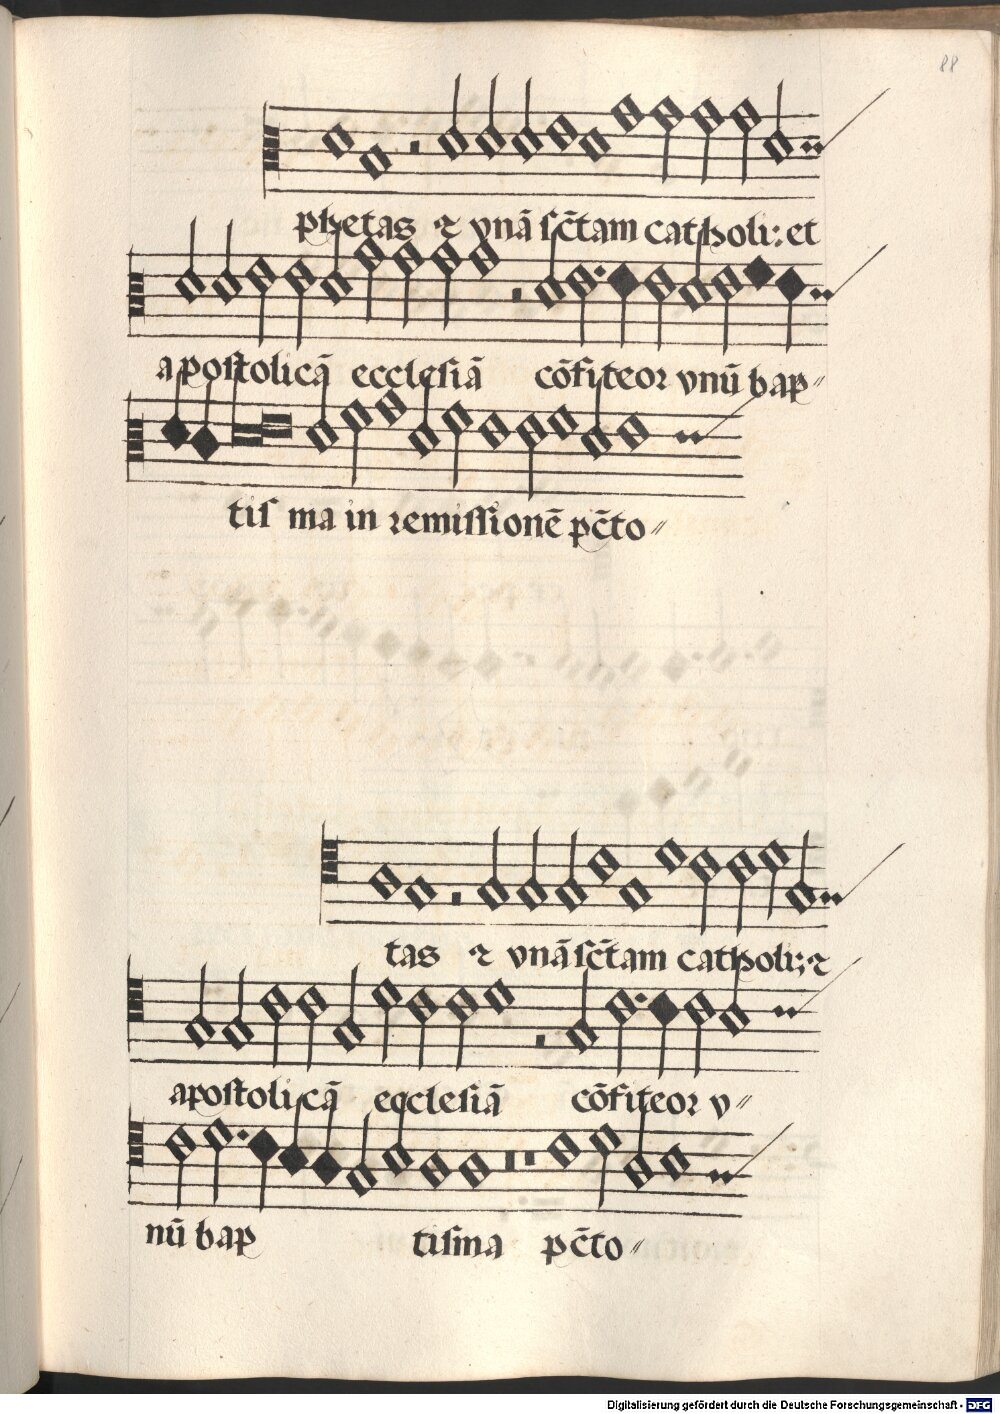 88
phetas ⁊ vnā sc̄tam catholi: et
apostolicā ecclesiā cōfiteor vnū bap〃
tis ma in remissionē pc̄to〃
tas ⁊ vnā sc̄tam catholi: ⁊
apostolicā ecclesiā cōfiteor v〃
nū bap tisma pc̄to〃
Digitalisierung gefördert durch die Deutsche Forschungsgemeinschaft - DFG